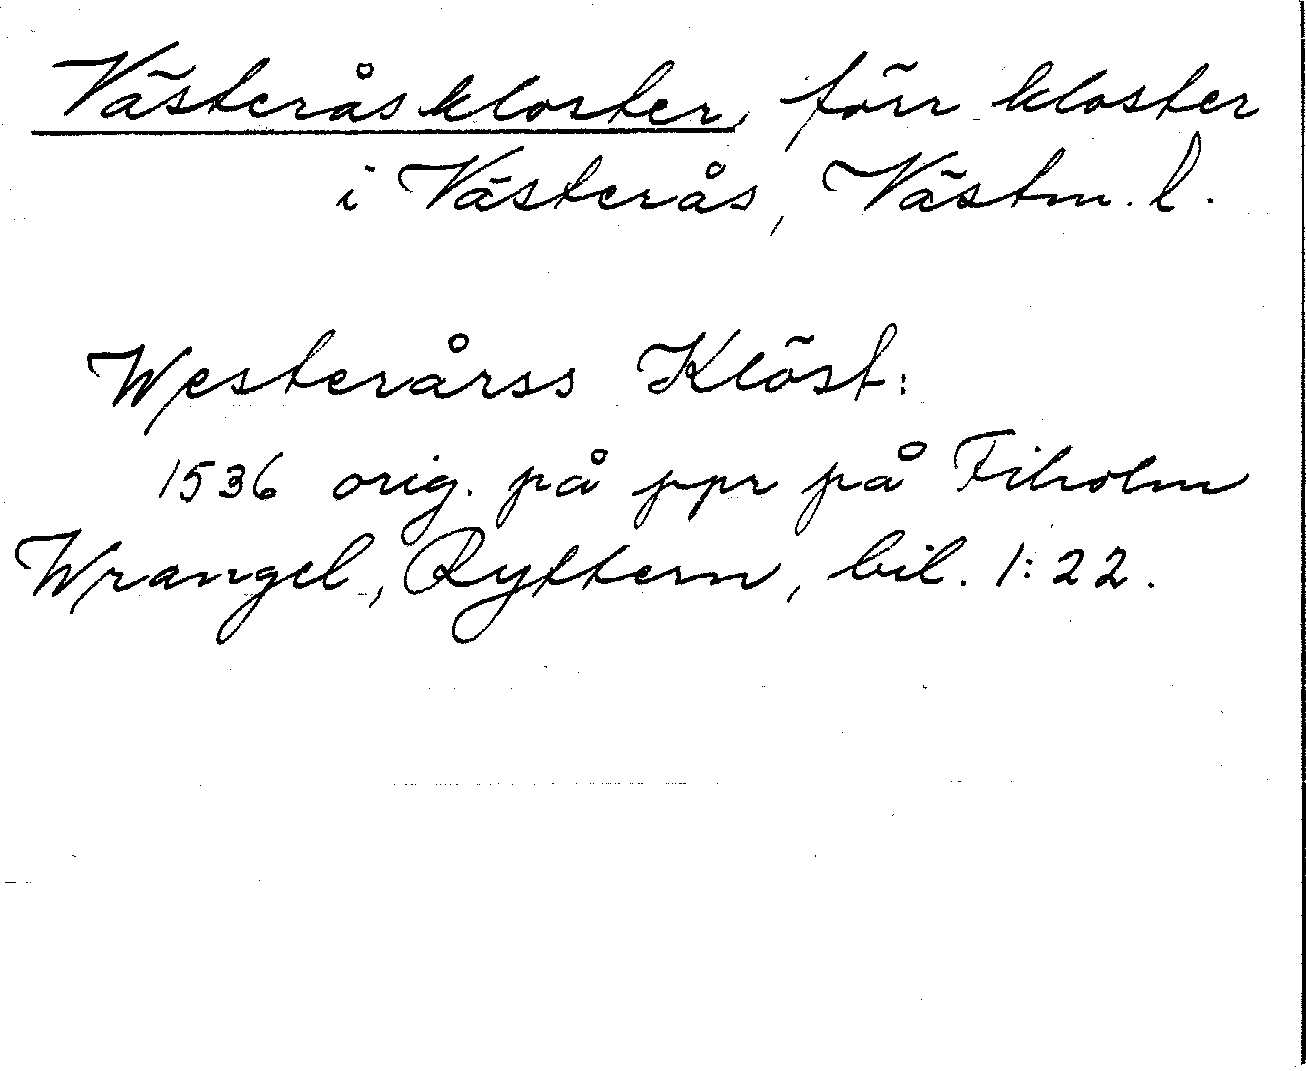 Västeråskloster, förr kloster
i Västerås, Västm. l.
Westerårss Klöst:
1536 orig. på ppr på Fiholm
Wrangel, Ryttern, bil. 1:22.